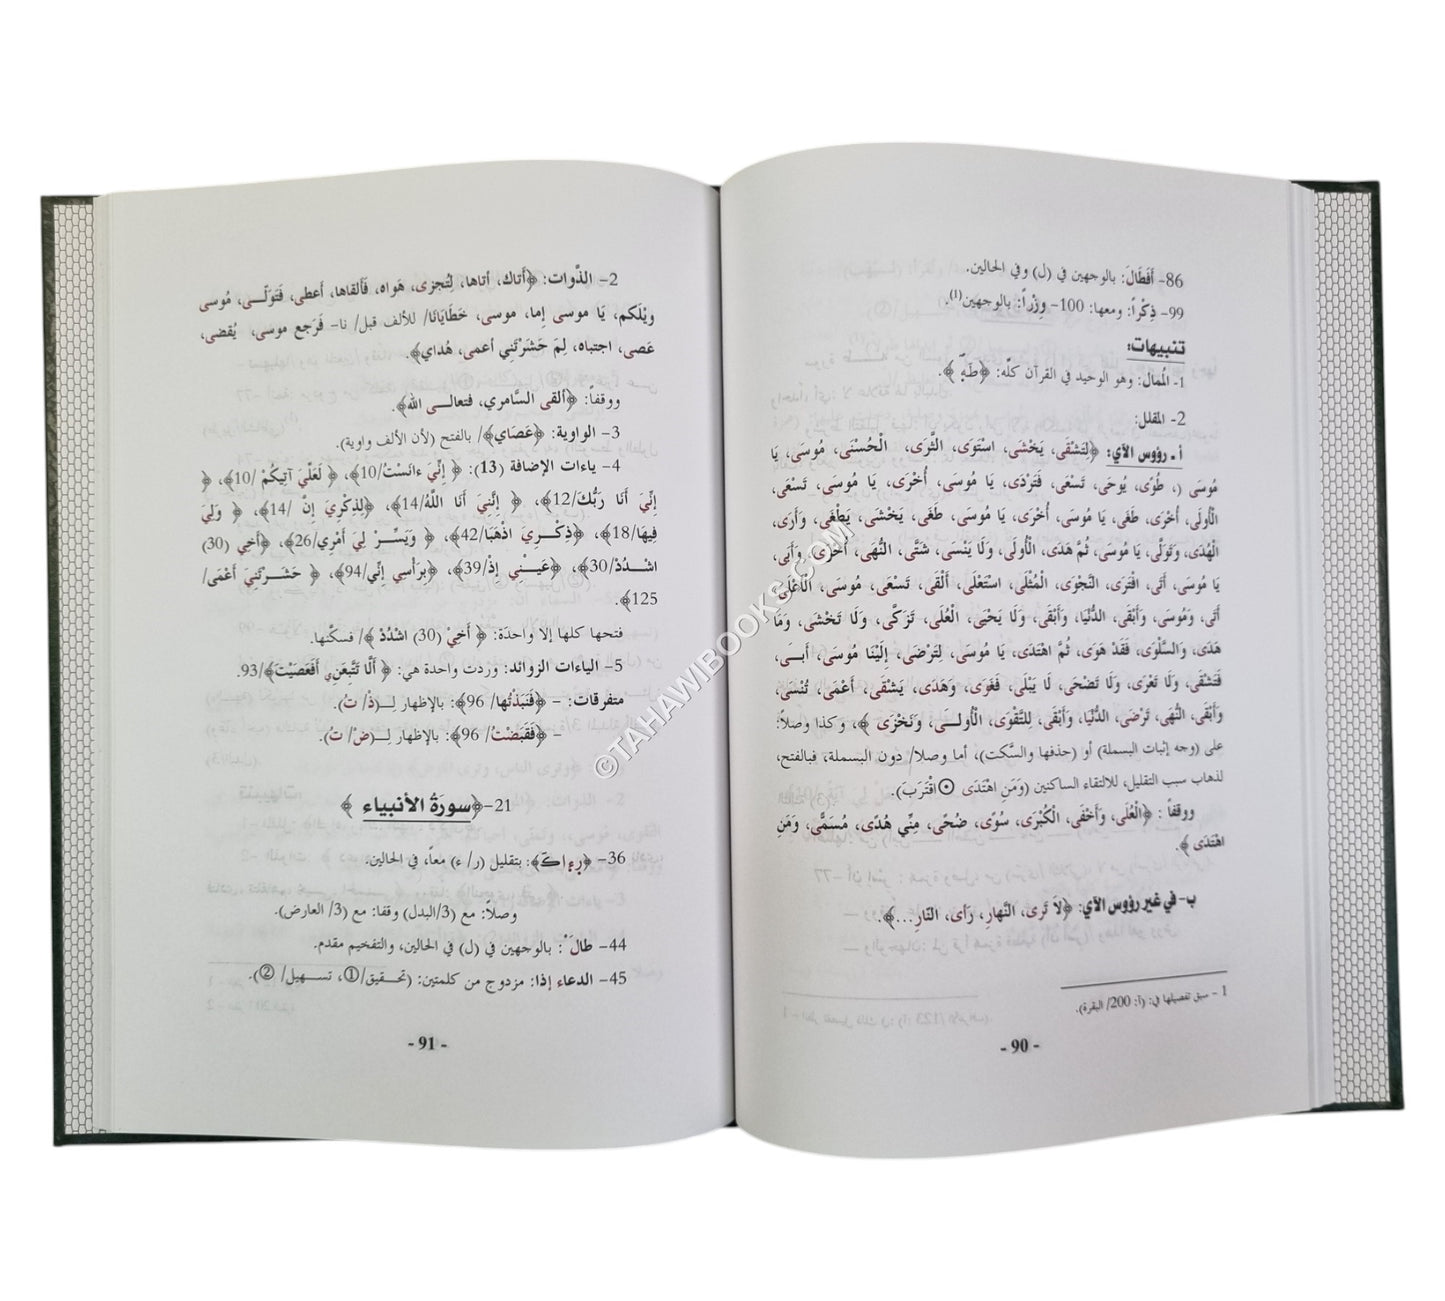 86- أَفَطَالَ: بالوجهين في (ل) وفي الحالين.
99- ذِكْراً: ومعها: 100- وِزْراً: بالوجهين(1).
تنبيهات:
1- الْمُمال: وهو الوحيد في القرآن كلّه: ﴿طَهَ﴾.
2- المقلل:
أ- رؤوس الآي: ﴿لِتَشْقَى، يَخْشَى، اسْتَوَى، الثَّرَى، الْحُسْنَى، مُوسَى، يَا
مُوسَى (، طُوًى، يُوحَى، تَسْعَى، فَتَرْدَى، يَا مُوسَى، أُخْرَى، يَا مُوسَى، تَسْعَى،
الْأُولَى، أُخْرَى، طَغَى، يَا مُوسَى، أُخْرَى، يَا مُوسَى، طَغَى، يَخْشَى، يَطْغَى، وَأَرَى،
الْهُدَى، وَتَوَلَّى، يَا مُوسَى، ثُمَّ هَدَى، الْأُولَى، وَلَا يَنْسَى، شَتَّى، النُّهَى، أُخْرَى، وَأَبَى،
يَا مُوسَى، أَتَى، افْتَرَى، النَّجْوَى، الْمُثْلَى، اسْتَعْلَى، أَلْقَى، تَسْعَى، مُوسَى، الْأَعْلَى،
أَتَى، وَمُوسَى، وَأَبْقَى، الدُّنْيَا، وَأَبْقَى، وَلَا يَحْيَى، الْعُلَى، تَزَكَّى، وَلَا تَخْشَى، وَمَا
هَدَى، وَالسَّلْوَى، فَقَدْ هَوَى، ثُمَّ اهْتَدَى، يَا مُوسَى، لِتَرْضَى، إِلَيْنَا مُوسَى، أَبَى،
فَتَشْقَى، وَلَا تَعْرَى، وَلَا تَضْحَى، لَا يَبْلَى، فَغَوَى، وَهَدَى، يَشْقَى، أَعْمَى، تُنْسَى،
وَأَبْقَى، النُّهَى، تَرْضَى، الدُّنْيَا، وَأَبْقَى، لِلتَّقْوَى، الْأُولَى، وَنَخْزَى﴾، وكذا وصلاً:
على (وجه إثبات البسملة) أو (حذفها والسَّكت)، أما وصلا/ دون البسملة، فبالفتح،
لذهاب سبب التقليل، للالتقاء الساكنين (وَمَنِ اهْتَدَى ⊙اقْتَرَبَ).
ووقفاً: ﴿الْعُلَى، وَأَخْفَى، الْكُبْرَى، سُوًى، ضُحًى، مِنِّي هُدًى، مُسَمًّى، وَمَنِ
اهْتَدَى﴾.
ب- في غير رؤوس الآي: ﴿لاَ تَرى، النَّهارِ، رَأى، النّارِ...﴾.
1 - سبق تفصيلها في: (آ: 200/ البقرة).
- 90 -
2- الذَّوات: ﴿أَتاك، أتاها، لِتُجزى، هَواه، فَأَلقاها، أَعطى، فَتَوَلّى، مُوسى
ويْلَكم، يَا موسى إما، موسى، خَطَايَانَا/ للألف قبل/ نا- فَرَجع موسى، يُقضى،
عَصى، اجتباه، لِمَ حَشَرْتَني أعمى، هُداي﴾.
ووقفاً: ﴿ألقى السَّامري، فتعالى الله﴾.
3- الواوية: ﴿عَصَاي﴾/ بالفتح (لأن الألف واوية).
4- ياءات الإضافة (13): ﴿إِنِّيَ ءانَسْتُ/10﴾، ﴿لَعَلِّيَ آتِيكُمْ/10﴾، ﴿
إِنِّيَ أَنَا رَبُّكَ/12﴾، ﴿إِنَّنِيَ أَنَا اللَّهُ/14﴾، ﴿لِذِكْرِيَ إِنَّ/14﴾، ﴿وَلِيَ
فِيهَا/18﴾، ﴿ذِكْرِيَ اذْهَبَا/42﴾، ﴿وَيَسِّرْ لِيَ أَمْرِي/26﴾، ﴿أَخِي (30)
اشْدُدْ/30﴾، ﴿عَيْنِيَ إِذْ/39﴾، ﴿بِرَأْسِيَ إِنِّي/94﴾، ﴿حَشَرْتَنِيَ أَعْمَى/
125﴾.
فتحها كلها إلا واحدَة: ﴿أَخِيْ (30) اشْدُدْ﴾/ فسكّنها.
5- الياءات الزوائد: وردت واحدة هي: ﴿أَلَّا تَتَّبِعَنِي أَفَعَصَيْتَ﴾/93.
متفرقات: - ﴿فَنَبَذتُها/ 96﴾: بالإظهار لِـ(ذْ/ تُ).
- ﴿فَقَبَضْتُ/ 96﴾: بالإظهار لِـ(ضْ/ تُ).
21-﴿سورَةُ الأنبياء﴾
36- ﴿رءاكَ﴾: بتقليل (ر/ ء) معاً، في الحالين.
وصلاً: مع (3/البدل) وقفا: مع (3/ العارض).
44- طَالَ: بالوجهين في (ل) في الحالين، والتفخيم مقدم.
45- الدعاء إذا: مزدوج من كلمتين: (تحقيق/①، تسهيل/ ②).
- 91 -
©TAHAWIBOOKS.COM